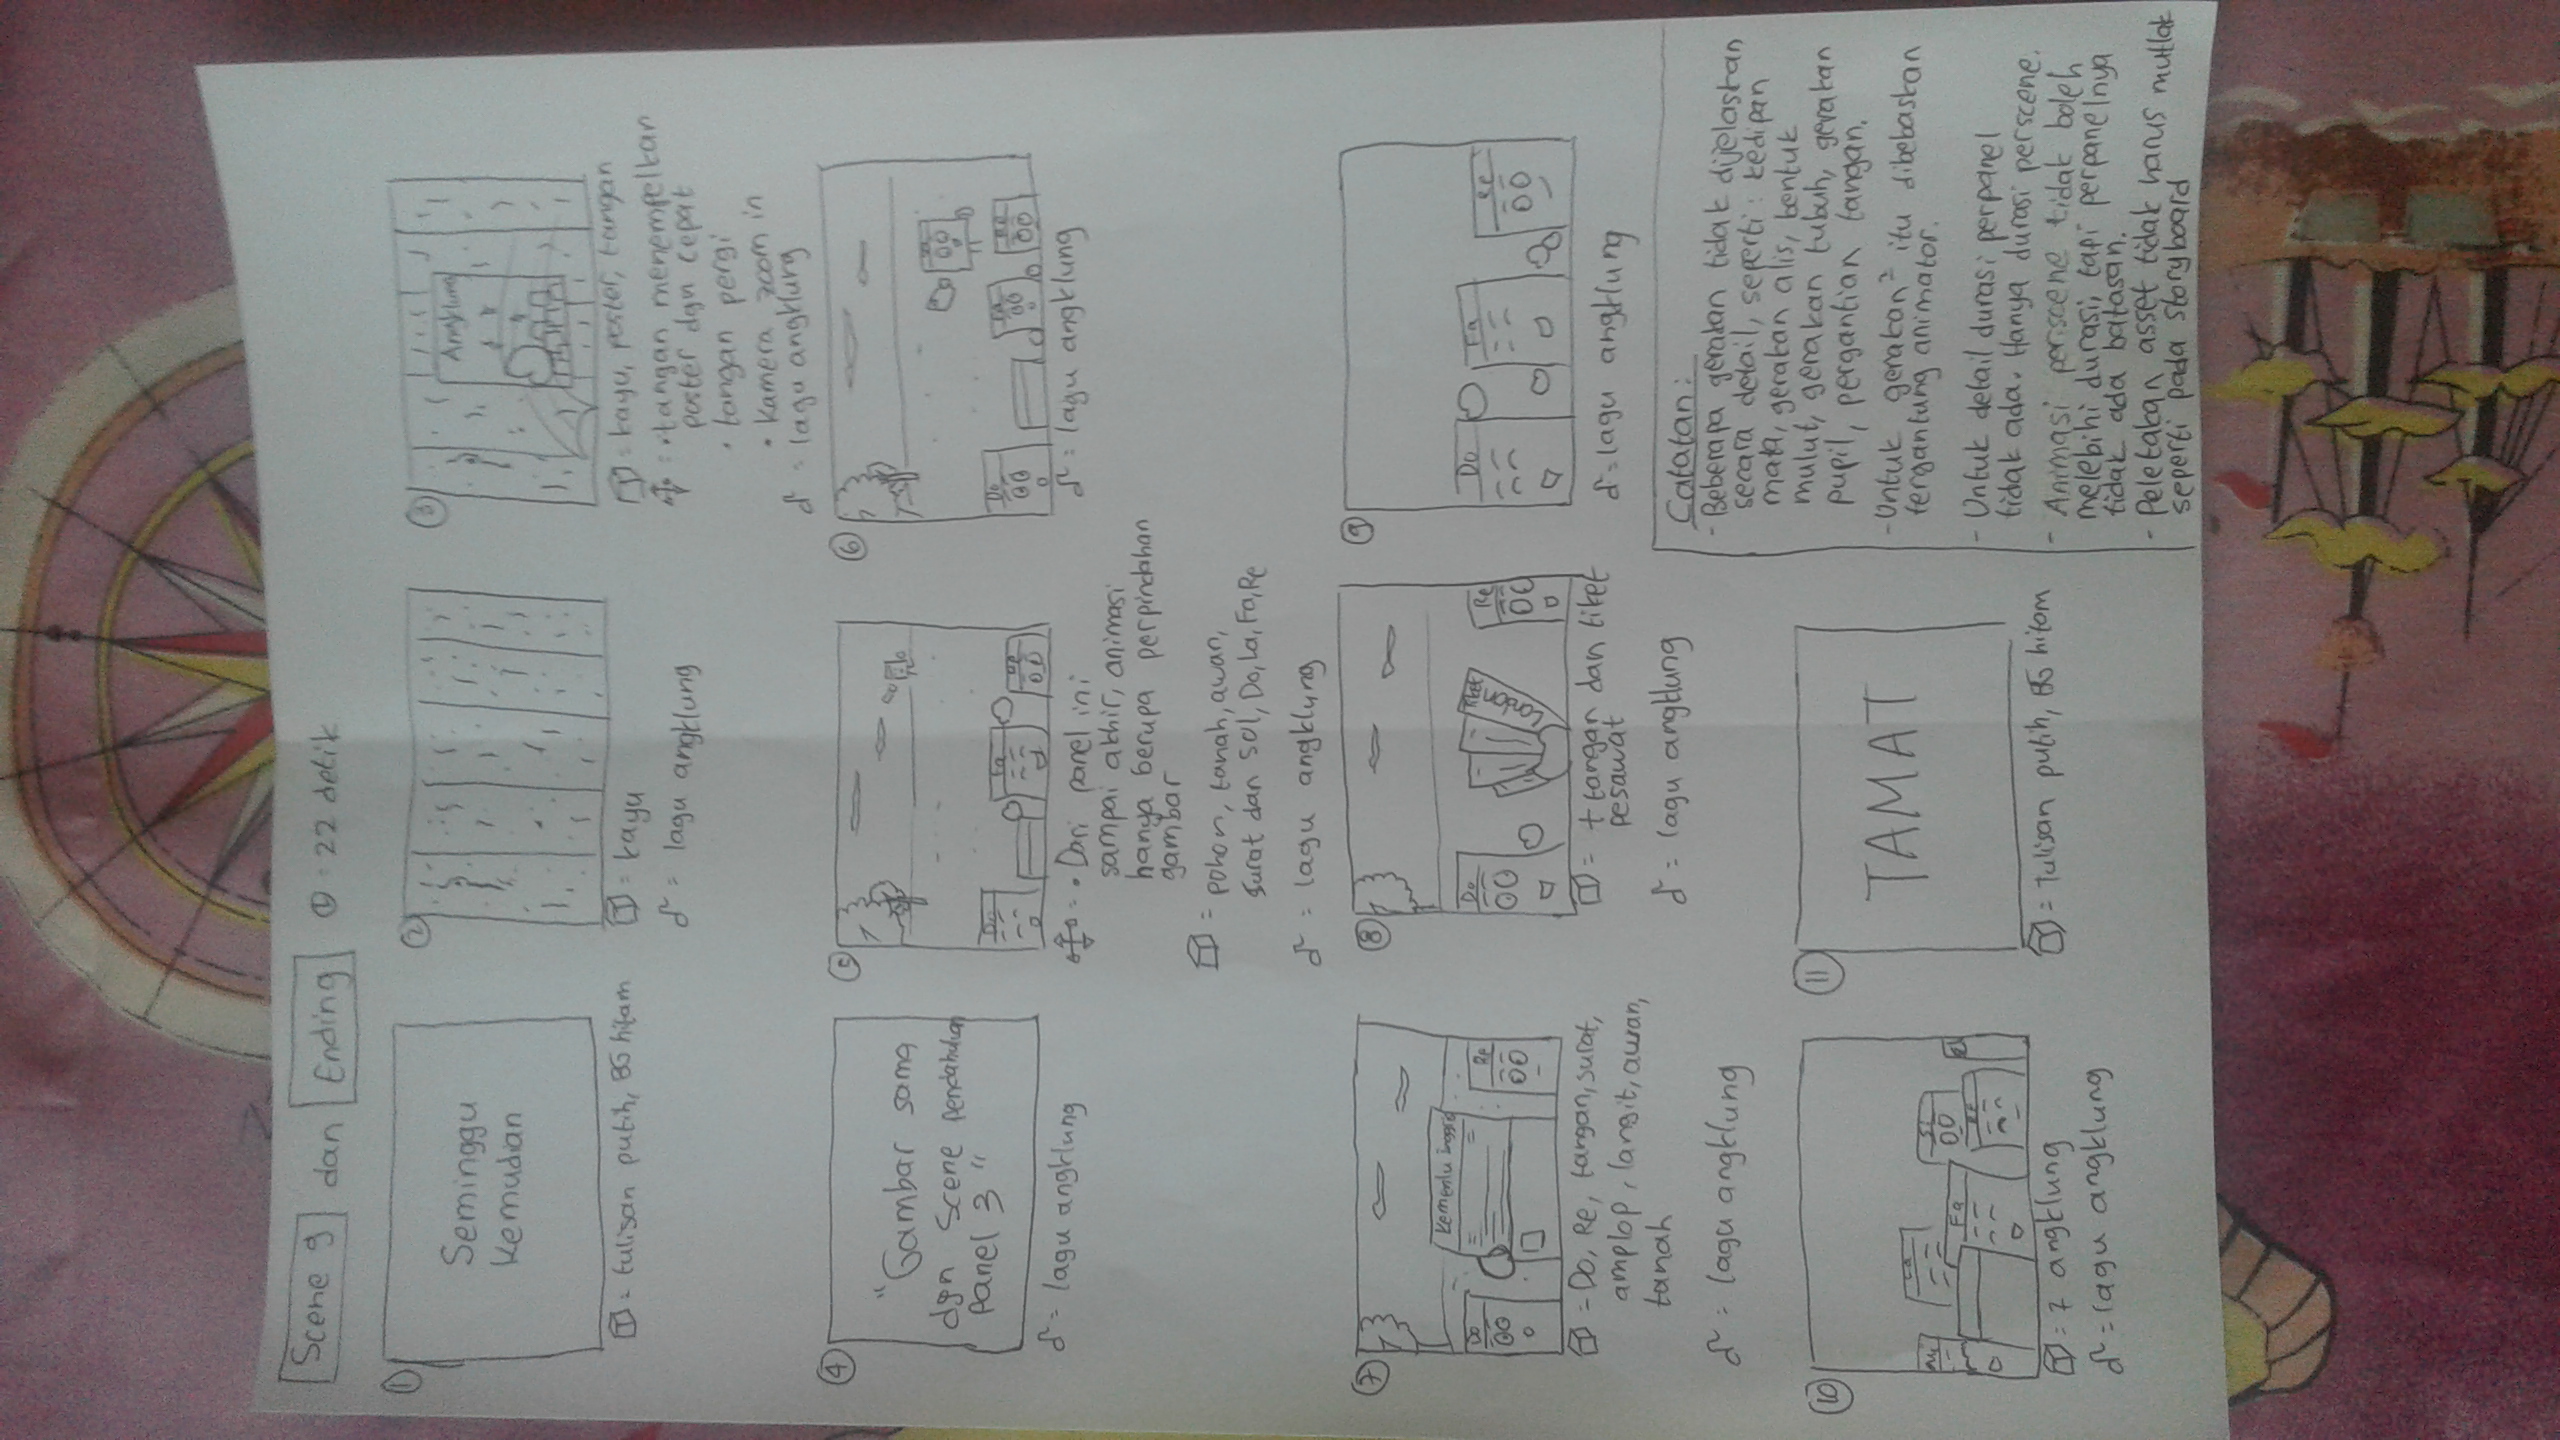 Scene 9 dan Ending : 22 detik
1
Seminggu
kemudian
= tulisan putih, BG hitam
2
= kayu
= lagu angklung
3
Angklung
= kayu, poster, tangan
= • tangan menempelkan
poster dgn cepat
• tangan pergi
• kamera zoom in
= lagu angklung
4
"Gambar sama
dgn Scene pendahuluan
Panel 3"
= lagu angklung
5
Do Fa Re
= • Dari panel ini
sampai akhir, animasi
hanya berupa perpindahan
gambar
= pohon, tanah, awan,
surat dan Sol, Do, La, Fa, Re
= lagu angklung
6
Do Fa Re
= lagu angklung
7
Kemenlu inggris
Do Re
= Do, Re, tangan, surat,
amplop, langit, awan,
tanah
= lagu angklung
8
Do Tiket London Re
= + tangan dan tiket
pesawat
= lagu angklung
9
Do Fa Re
= lagu angklung
10
Mi La Fa Si Re
= 7 angklung
= lagu angklung
11
TAMAT
= Tulisan putih, BG hitam
Catatan:
- Beberapa gerakan tidak dijelaskan
secara detail, seperti: kedipan
mata, gerakan alis, bentuk
mulut, gerakan tubuh, gerakan
pupil, pergantian tangan.
- Untuk gerakan² itu dibebaskan
tergantung animator.
- Untuk detail durasi perpanel
tidak ada. Hanya durasi perscene.
- Animasi perscene tidak boleh
melebihi durasi, tapi perpanelnya
tidak ada batasan.
- Peletakan asset tidak harus mutlak
seperti pada storyboard